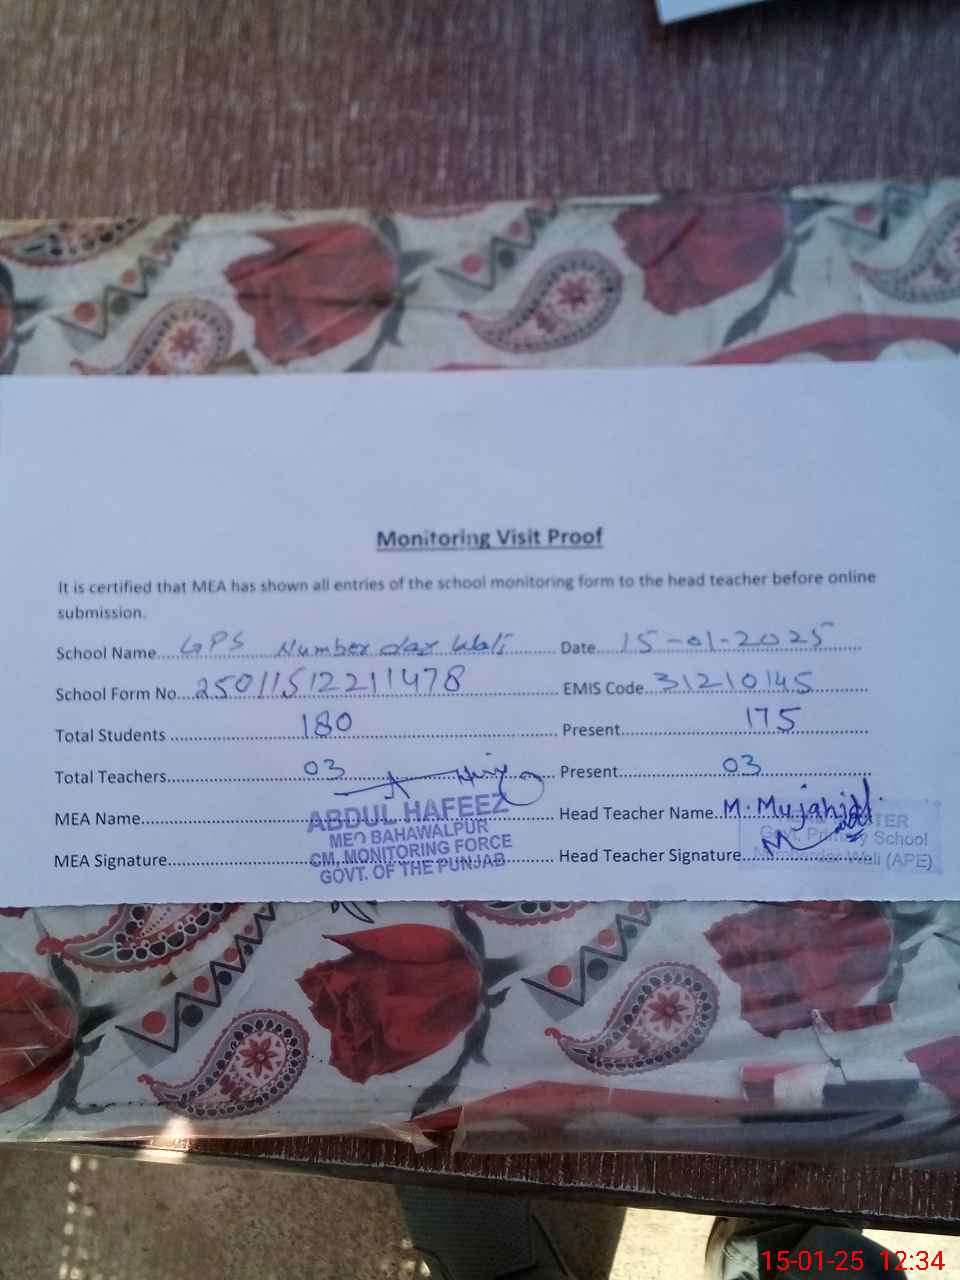 Monitoring Visit Proof
It is certified that MEA has shown all entries of the school monitoring form to the head teacher before online
submission.
School Name GPS Number dar Wali Date 15-01-2025
School Form No. 25011512211478 EMIS Code 31210145
Total Students 180 Present 175
Total Teachers 03 Present 03
MEA Name Head Teacher Name M. Mujahid
MEA Signature Head Teacher Signature
ABDUL HAFEEZ
MEO BAHAWALPUR
CM, MONITORING FORCE
GOVT. OF THE PUNJAB
Govt. Primary School
Wali (APE)
15-01-25 12:34